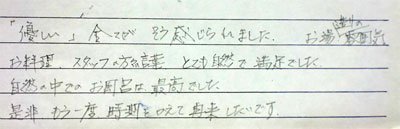 「優しい」全てが そう感じられました。 お湯 雰囲気
お料理、スタッフの方の言葉 とても自然で 満足でした。
自然の中でのお風呂は最高でした。
是非 もう一度 時期をかえて 再来したいです。